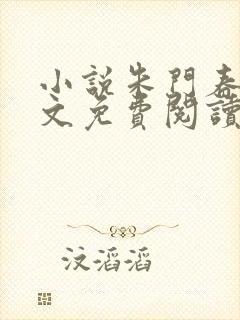 小說朱門春
文免費閱讀
汶滔滔